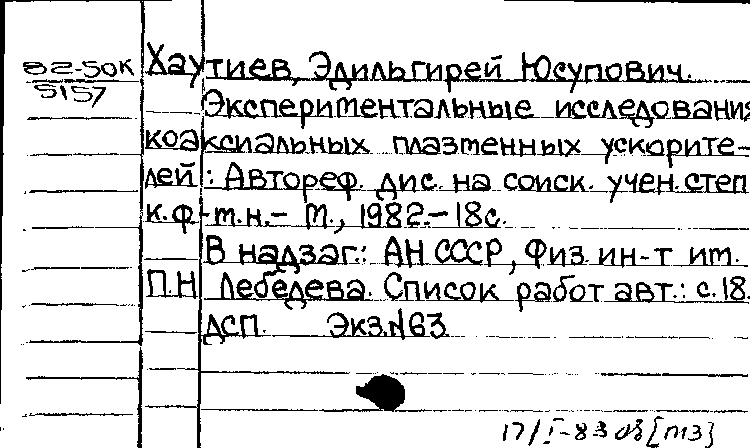 82-50к
5157
Хаутиев, Эдильгирей Юсупович.
Экспериментальные исследования
коаксиальных плазменных ускорите-
лей : Автореф. дис. на соиск. учен. степ.
к.ф-м.н.- М., 1982.-18с.
В надзаг.: АН СССР, Физ. ин-т им.
П.Н Лебедева. Список работ авт.: с.18.
ДСП. Экз.№63
17/I-83 [пгз]